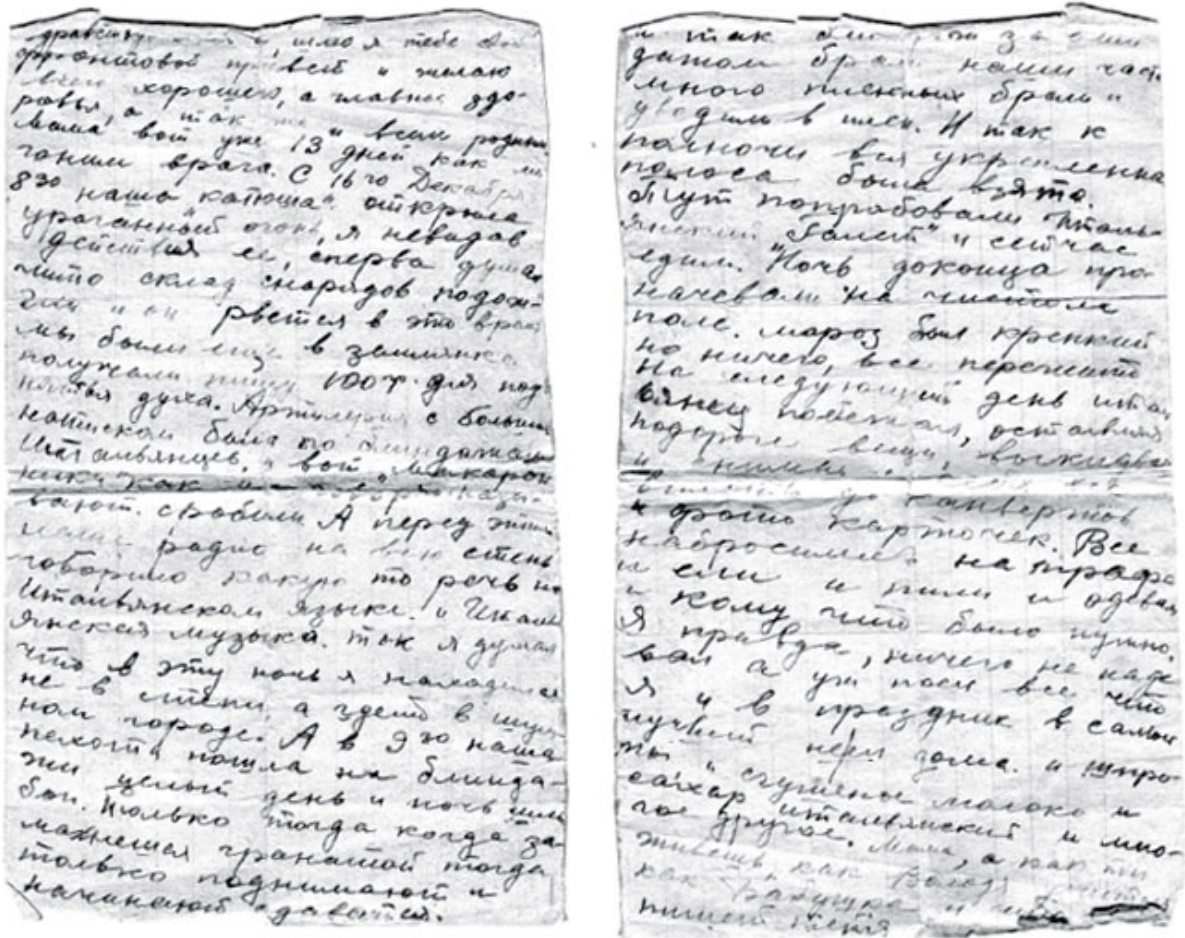 шлю я тебе
фронтовой привет и желаю
всего хорошего, а главное здо-
ровья, а так же и всем родным.
Мама вот уже 13 дней как мы
гоним врага. С 16го Декабря
8 30 наша "катюша" открыла
ураганный огонь, я невидав
действия ее, сперва думал
что склад снарядов подож-
гли и он рвется в это время
мы были еще в землянке
получали пищу 100 гр. для под-
нятья духа. Артилерия с большим
натиском была по блиндажам
Итальянцев. и вот "макарон
ники" как
вают. сдобили А перед этим
радио на всю степь
говорило какую то речь на
Итальянском языке. и Италь
янская музыка. так я думал
что в эту ночь я находился
не в степи, а где то в шум
ном городе. А в 9 30 наша
пехота пошла на блинда-
жи целый день и ночь шли
бои. Только тогда когда за-
махнешся гранатой тогда
только поднимают и
начинают сдаватся.
и так за
дотом брали наши части
много пленных брали и
уводили в тыл. И так к
полночи вся укрепленна
полоса была взята.
Тут попробовали "италь-
янский Галет" и сейчас
едим. Ночь доконца про-
начевали на чистом
поле. мароз был крепкий
но ничего, все пережито
На следующий день итал
ьянец побежал, оставляя
подороге вещи, выкидывая

до конвертов
и фото карточек. Все
набросились на трофе
и ели и пили и одевал
и кому что было нужно.
Я правда, ничего не наде
вал а уж поел все что
я и в праздник в самый
лучший неел дома. и шпро-
ты и сгущеное молоко и
сахар итальянский и мно-
гое другое. Мама, а как ты
живешь как Володя
как Бабушка и что
пишет тетя